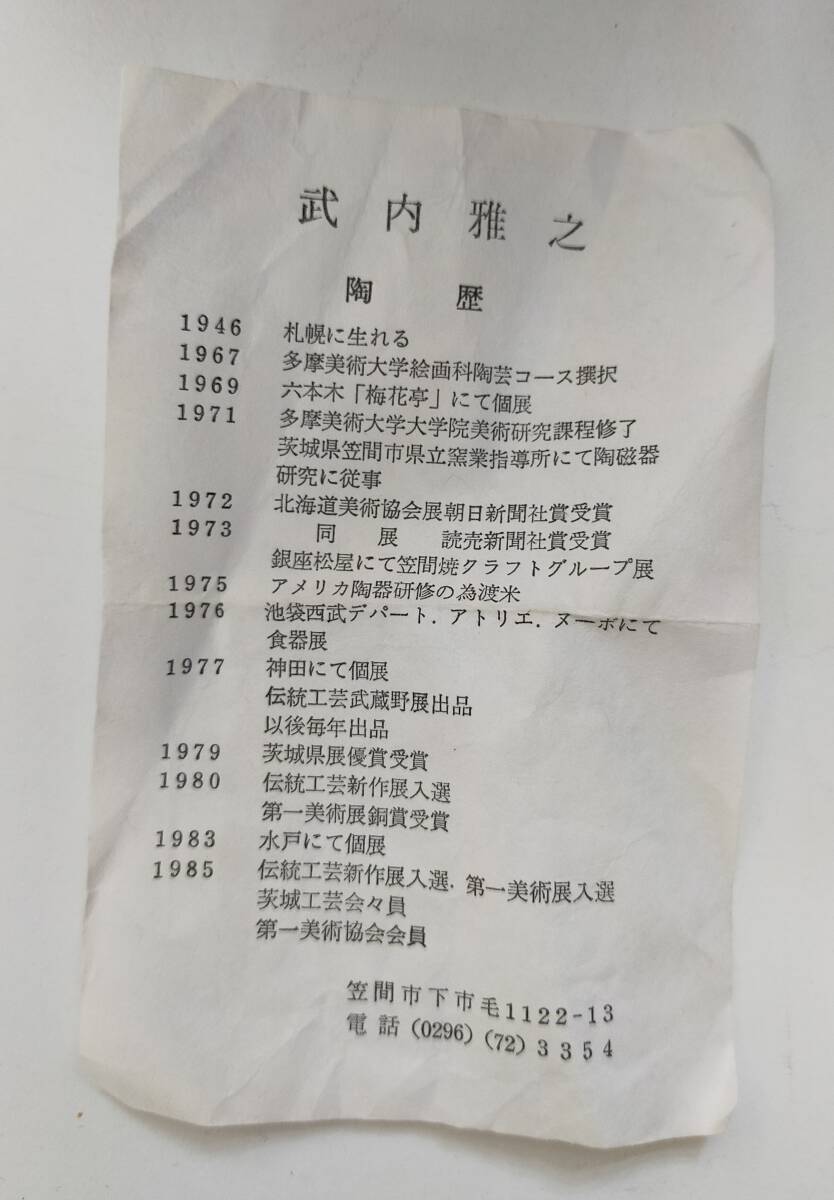 武内雅之
陶歴
1946 札幌に生れる
1967 多摩美術大学絵画科陶芸コース撰択
1969 六本木「梅花亭」にて個展
1971 多摩美術大学大学院美術研究課程修了
茨城県笠間市県立窯業指導所にて陶磁器
研究に従事
1972 北海道美術協会展朝日新聞社賞受賞
1973 同展 読売新聞社賞受賞
銀座松屋にて笠間焼クラフトグループ展
1975 アメリカ陶器研修の為渡米
1976 池袋西武デパート．アトリエ．ヌーボにて
食器展
1977 神田にて個展
伝統工芸武蔵野展出品
以後毎年出品
1979 茨城県展優賞受賞
1980 伝統工芸新作展入選
第一美術展銅賞受賞
1983 水戸にて個展
1985 伝統工芸新作展入選．第一美術展入選
茨城工芸会々員
第一美術協会会員
笠間市下市毛1122-13
電話(0296)(72)3354